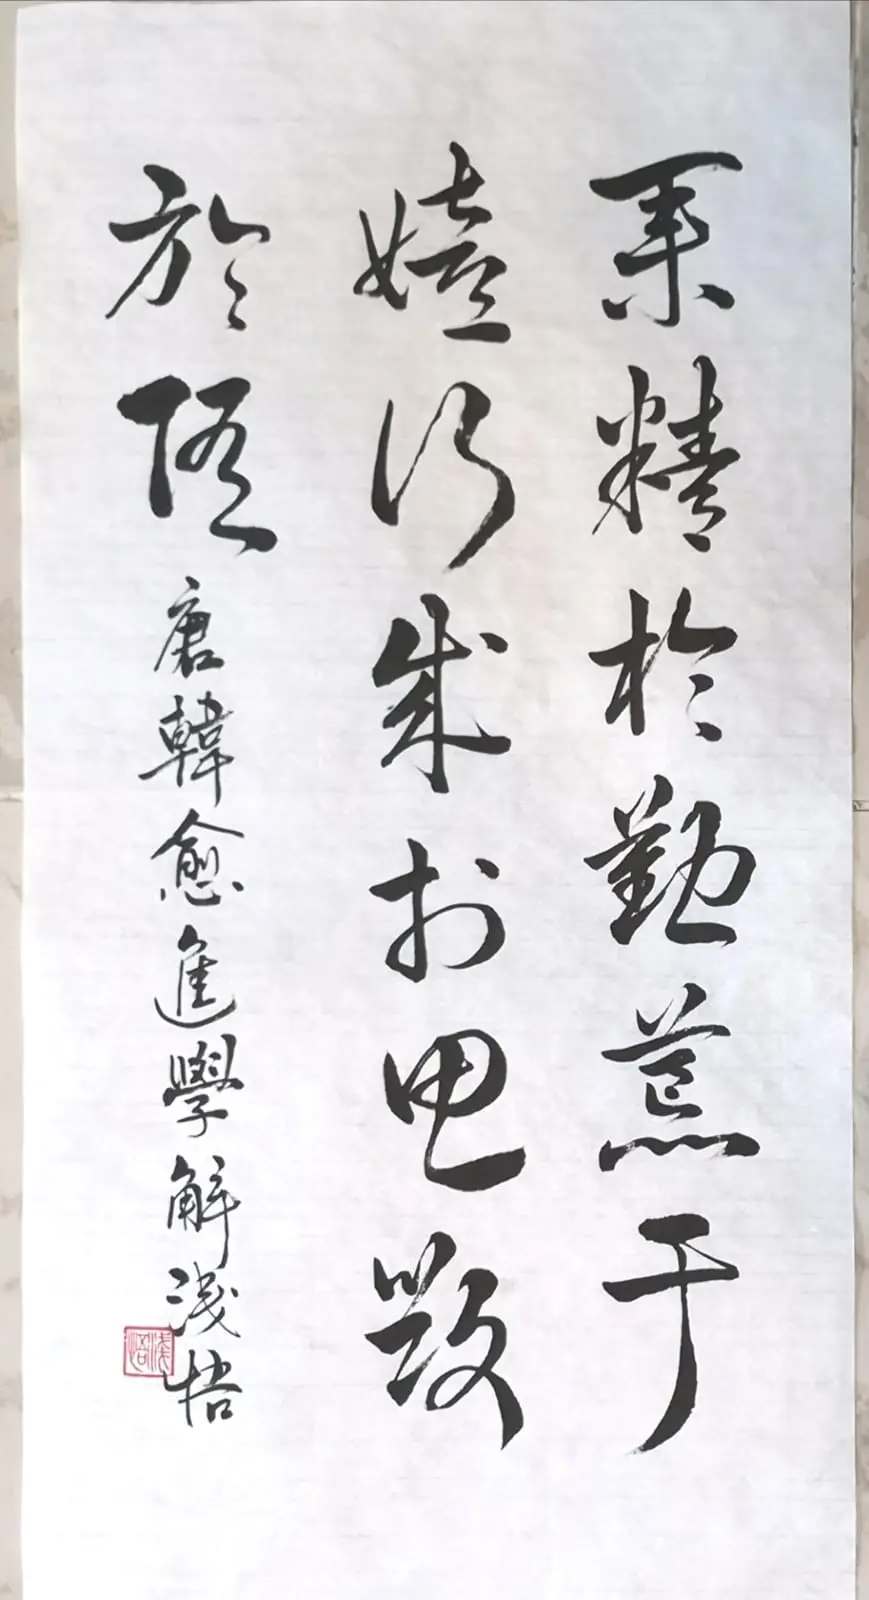 業精於勤荒于
嬉行成於思毀
於随
唐韓愈進學解淺悟
淺悟